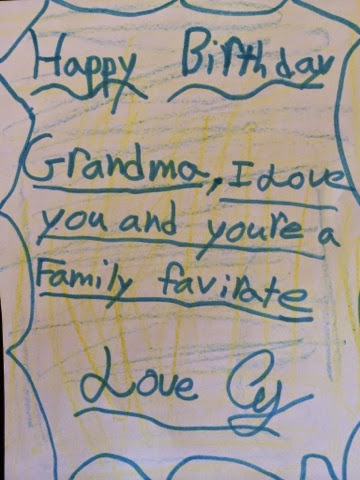 Happy Birthday
Grandma, I Love
you and you're a
Family favirate
Love Cy